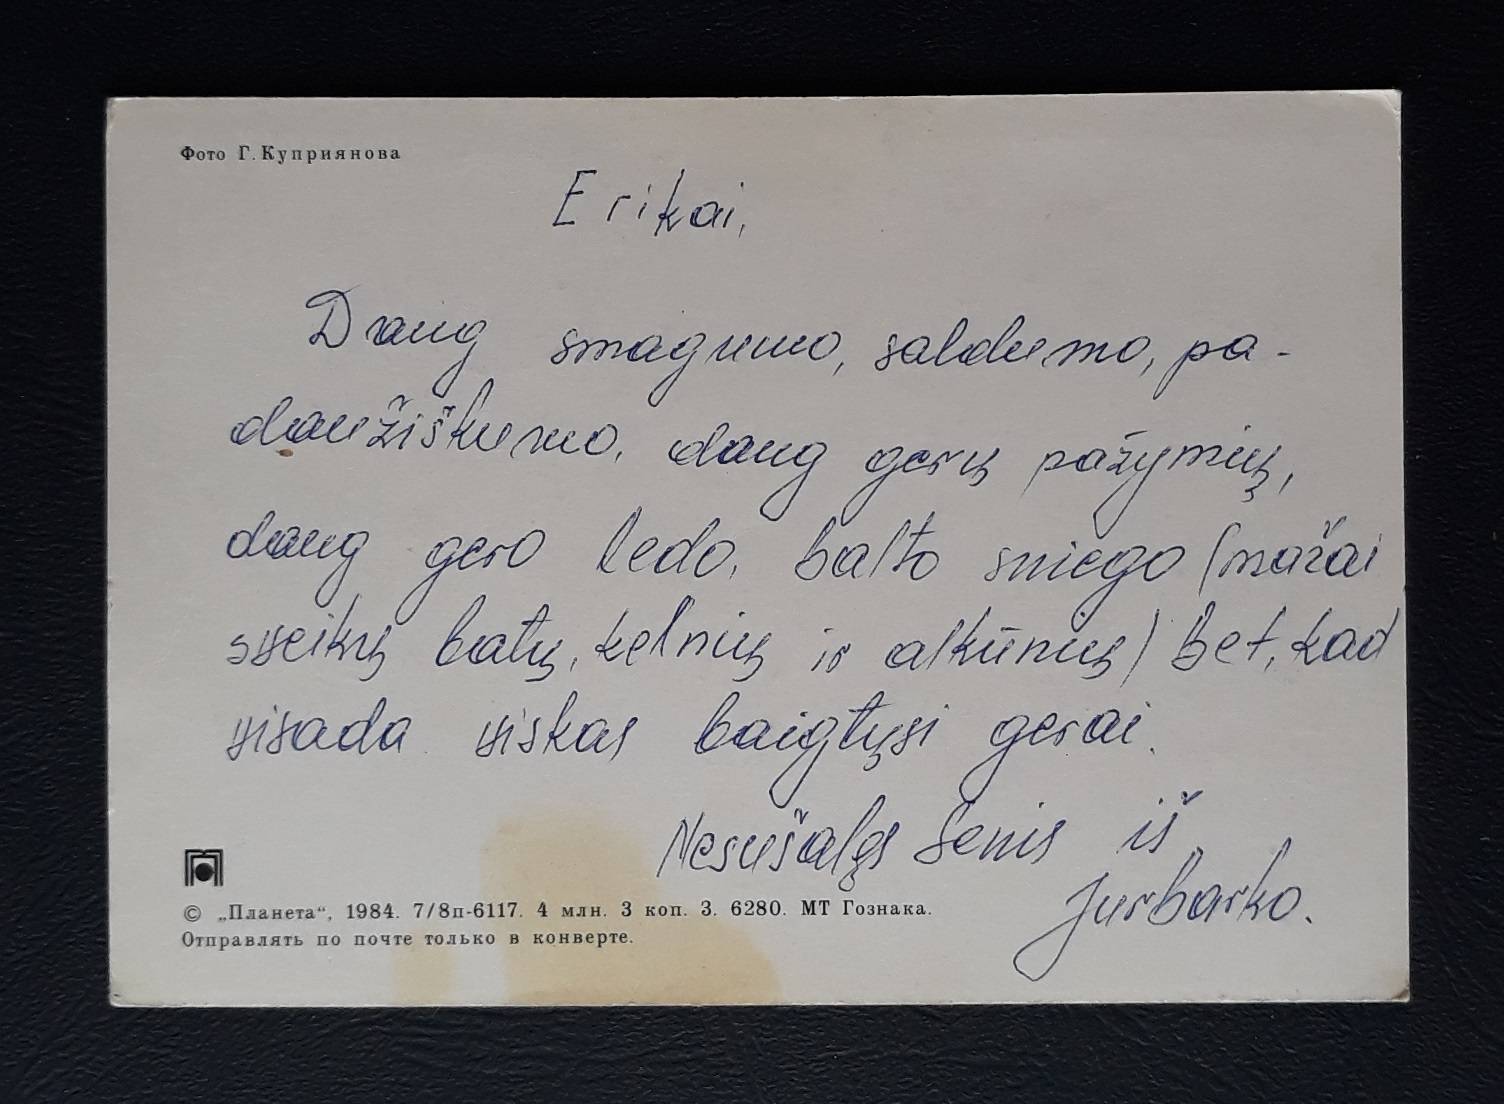 Фото Г. Куприянова
Erikai,
Daug smagumo, saldumo, pa-
daužiškumo, daug gerų pažymių,
daug gero ledo, balto sniego (mažai
sveikų batų, kelnių ir alkūnių) Bet, kad
visada viskas baigtųsi gerai.
Nesušalęs Senis iš
Jurbarko.
© „Планета“, 1984. 7/8п-6117. 4 млн. 3 коп. З. 6280. МТ Гознака.
Отправлять по почте только в конверте.